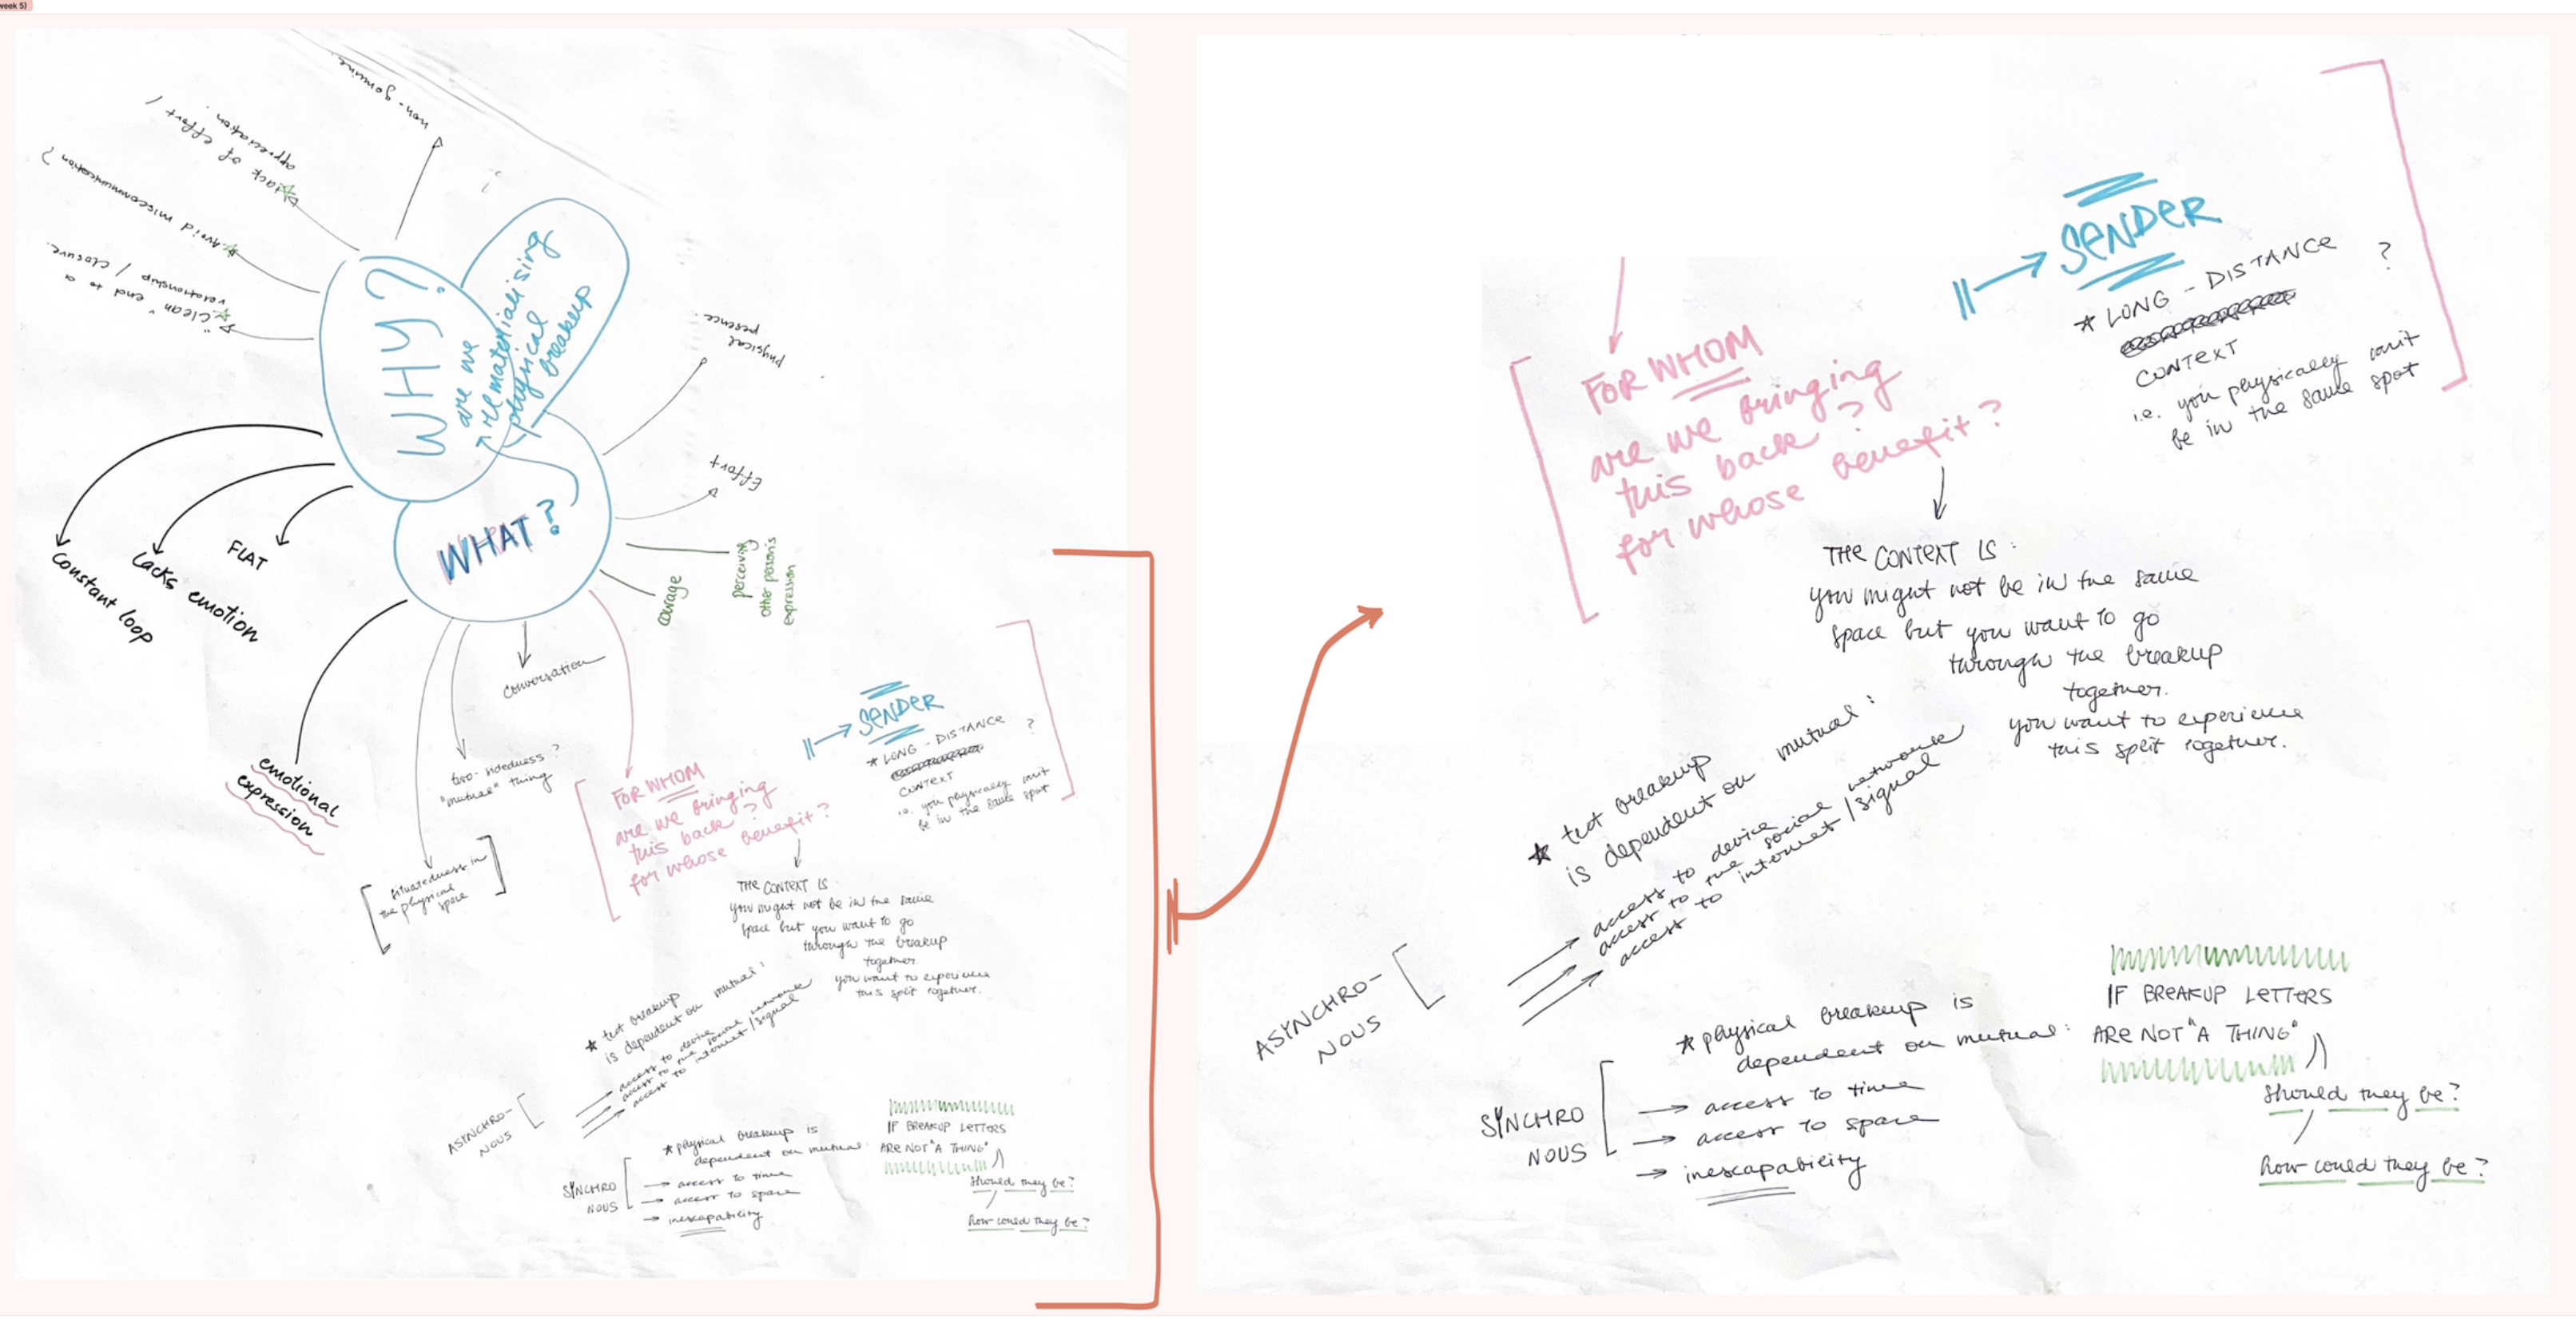 week 5)
non-genuine
lack of effort /
appreciation.
Avoid miscommunication?
"clean" end to a
relationship / closure.
WHY?
are we
rematerialising
physical
breakup
physical
presence.
Effort
perceiving
other person's
expression
courage
WHAT?
FLAT
Lacks emotion
Constant loop
emotional
expression
conversation
two-sidedness?
"mutual" thing
situatedness in
the physical
space
FOR WHOM
are we bringing
this back?
for whose benefit?
SENDER
* LONG - DISTANCE ?
CONTEXT
i.e. you physically can't
be in the same spot
THE CONTEXT IS:
you might not be in the same
space but you want to go
through the breakup
together.
you want to experience
this split together.
* text breakup
is dependent on mutual:
access to device
access to the social network
access to internet / signal
ASYNCHRO-
NOUS
* physical breakup is
dependent on mutual:
access to time
access to space
inescapability
SYNCHRO
NOUS
IF BREAKUP LETTERS
ARE NOT "A THING"
should they be?
how could they be?
FOR WHOM
are we bringing
this back?
for whose benefit?
SENDER
* LONG - DISTANCE ?
CONTEXT
i.e. you physically can't
be in the same spot
THE CONTEXT IS:
you might not be in the same
space but you want to go
through the breakup
together.
you want to experience
this split together.
* text breakup
is dependent on mutual:
access to device
access to the social network
access to internet / signal
ASYNCHRO-
NOUS
* physical breakup is
dependent on mutual:
access to time
access to space
inescapability
SYNCHRO
NOUS
IF BREAKUP LETTERS
ARE NOT "A THING"
should they be?
how could they be?